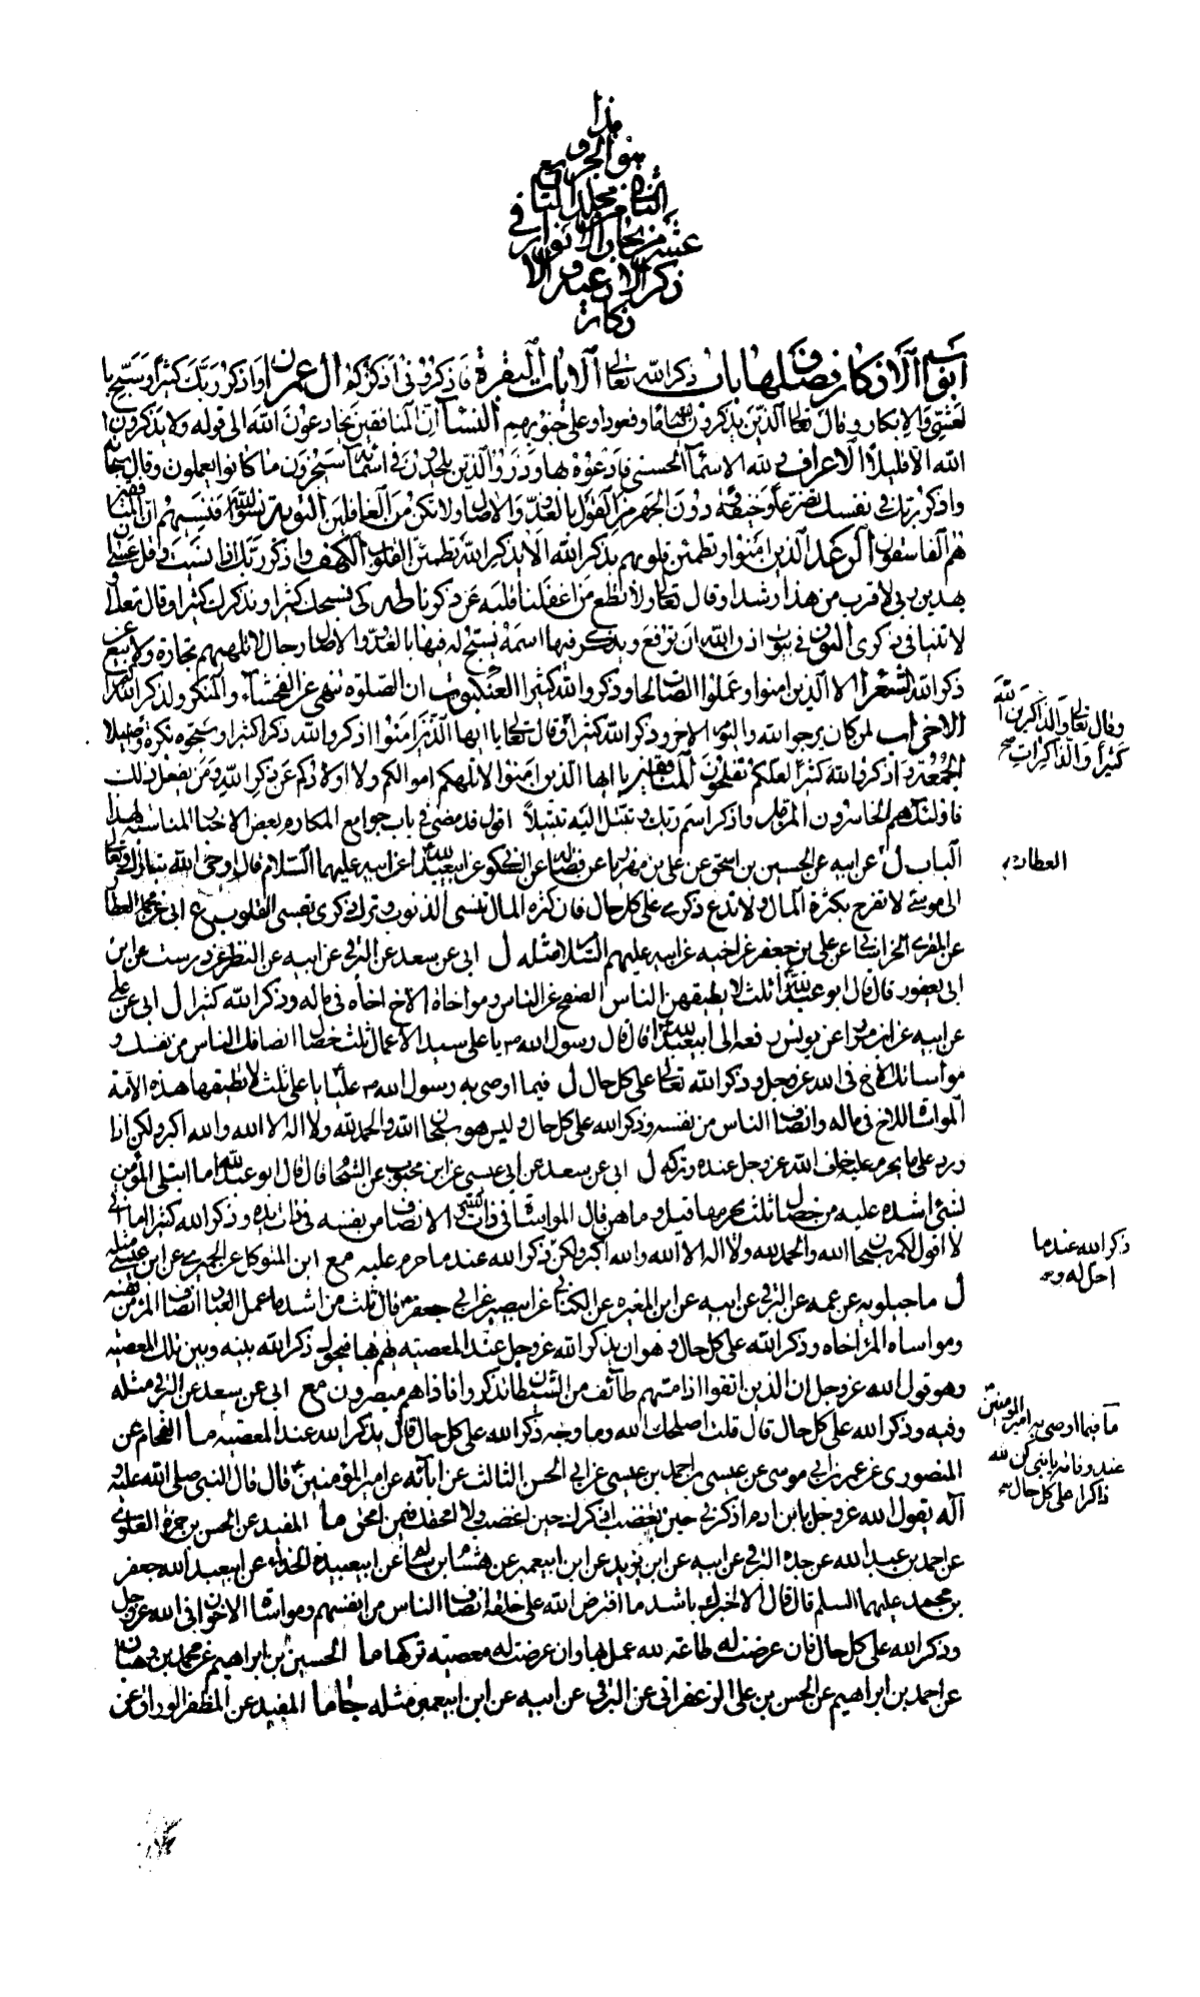 هذا
هو الجزو
الثاني من مجلد التاسع
عشر من بحار الانوار في
ذكر الادعية والا
ذكار
ابواب الاذكار وفضلها باب ذكر الله تعالى الايات البقرة فاذكروني اذكركم ال عمران واذكر ربك كثيرا وسبح با
لعشي والابكار وقال تعالى الذين يذكرون الله قياما وقعودا وعلى جنوبهم النساء ان المنافقين يخادعون الله الى قوله ولا يذكرون
الله الا قليلا الاعراف ولله الاسماء الحسنى فادعوه بها وذروا الذين يلحدون في اسمائه سيجزون ما كانوا يعملون وقال سبحانه
واذكر ربك في نفسك تضرعا وخيفة ودون الجهر من القول بالغدو والاصال ولا تكن من الغافلين التوبة نسوا الله فنسيهم ان المنافقين
هم الفاسقون الرعد الذين امنوا وتطمئن قلوبهم بذكر الله الا بذكر الله تطمئن القلوب الكهف واذكر ربك اذا نسيت وقل عسى ان
يهدين ربي لاقرب من هذا رشدا وقال تعالى ولا تطع من اغفلنا قلبه عن ذكرنا طه كي نسبحك كثيرا ونذكرك كثيرا وقال تعالى و
لا تنيا في ذكري النور في بيوت اذن الله ان ترفع ويذكر فيها اسمه يسبح له فيها بالغدو والاصال رجال لا تلهيهم تجارة ولا بيع عن
ذكر الله الشعراء الا الذين امنوا وعملوا الصالحات وذكروا الله كثيرا العنكبوت ان الصلوة تنهى عن الفحشاء والمنكر ولذكر الله اكبر
الاحزاب لمن كان يرجوا الله واليوم الاخر وذكر الله كثيرا وقال تعالى يا ايها الذين امنوا اذكروا الله ذكرا كثيرا وسبحوه بكرة واصيلا
وقال تعالى والذاكرين الله
كثيرا والذاكرات صح
الجمعة واذكروا الله كثيرا لعلكم تفلحون المنافقين يا ايها الذين امنوا لا تلهكم اموالكم ولا اولادكم عن ذكر الله ومن يفعل ذلك
فاولئك هم الخاسرون المزمل واذكر اسم ربك وتبتل اليه تبتيلا اقول قد مضى في باب جوامع المكارم بعض الاخبار المناسبة لهذا
الباب ل عن ابيه عن الحسين بن اسحق عن علي بن مهزيار عن فضالة عن السكوني عن ابيعبدالله عن ابيه عليهما السلام قال اوحى الله تبارك وتعالى
العطار
الى موسى لا تفرح بكثرة المال ولا تدع ذكري على كل حال فان كثرة المال تنسى الذنوب وترك ذكري يقسى القلوب ع ابي عن محمد العطار
عن المقري الخراساني عن علي بن جعفر عن اخيه عن ابيه عليهم السلام مثله ل ابي عن سعد عن البرقي عن ابيه عن النظر عن درست عن ابن
ابي يعفور قال قال ابو عبدالله ثلث لا يطيقهن الناس الصفح عن الناس ومواخاة الاخ اخاه في ماله وذكر الله كثيرا ل ابي عن علي
عن ابيه عن ابن مرار عن يونس رفعه الى ابيعبدالله قال قال رسول الله ص يا علي سيد الاعمال ثلث خصال انصافك الناس من نفسك و
مواساتك الاخ في الله عز وجل وذكر الله تعالى على كل حال ل فيما اوصى به رسول الله ص عليا يا علي ثلث لا تطيقها هذه الامة
المواساة للاخ في ماله وانصاف الناس من نفسه وذكر الله على كل حال وليس هو سبحان الله والحمد لله ولا اله الا الله والله اكبر ولكن اذا
ورد على ما يحرم عليه خاف الله عز وجل عنده وتركه ل ابي عن سعد عن ابي عيسى عن ابن محبوب عن الشحام قال قال ابو عبدالله ما ابتلى المؤمن
بشئ اشد عليه من خصال ثلث يحرمها قيل وما هن قال المواساة في ذات الله والانصاف من نفسه في ذات يده وذكر الله كثيرا اما اني
لا اقول لكم سبحان الله والحمد لله ولا اله الا الله والله اكبر ولكن ذكر الله عندما حرم عليه مع ابن المتوكل عن الحميري عن ابن عيسى مثله
ذكر الله عندما
احل له و صح
ل ماجيلويه عن عمه عن البرقي عن ابيه عن ابن المغيره عن الكناني عن ابيبصير عن ابي جعفر قال ثلث من اشد ما عمل العباد انصاف المؤمن من نفسه
ومواساه المرء اخاه وذكر الله على كل حال وهو ان يذكر الله عز وجل عند المعصيه يهم بها فيحول ذكر الله بينه وبين تلك المعصيه
وهو قول الله عز وجل ان الذين اتقوا اذا مسهم طائف من الشيطان تذكروا فاذا هم مبصرون مع ابي عن سعد عن البرقي مثله
وفيه وذكر الله على كل حال قال قلت اصلحك الله وما وجه ذكر الله على كل حال قال يذكر الله عند المعصيه ما الفحام عن
ما فيما اوصى به امير المؤمنين
عند وفاته يا بني كن لله
ذاكرا على كل حال صح
المنصوري عن عمر بن ابي موسى عن عيسى بن احمد بن عيسى عن ابي الحسن الثالث عن ابائه عن امير المؤمنين قال قال النبي صلى الله عليه و
آله يقول الله عز وجل يا ابن ادم اذكرني حين تغضب اذكرك حين اغضب ولا امحقك فيمن امحق ما المفيد عن الحسن بن حمزة العلوي
عن احمد بن عبدالله عن جده البرقي عن ابيه عن ابن يزيد عن ابن ابيعمير عن هشام بن سالم عن ابيعبيدة الحذاء عن ابيعبدالله جعفر
بن محمد عليهما السلم قال قال الا اخبرك باشد ما افترض الله على خلقه انصاف الناس من انفسهم ومواساة الاخوان في الله عز وجل
وذكر الله على كل حال فان عرضت له طاعة لله عمل بها وان عرضت له معصيته تركها ما الحسين بن ابراهيم عن محمد بن وهبان
عن احمد بن ابراهيم عن الحسن بن علي الزعفراني عن البرقي عن ابيه عن ابن ابيعمير مثله جا ما المفيد عن المظفر الوراق عن